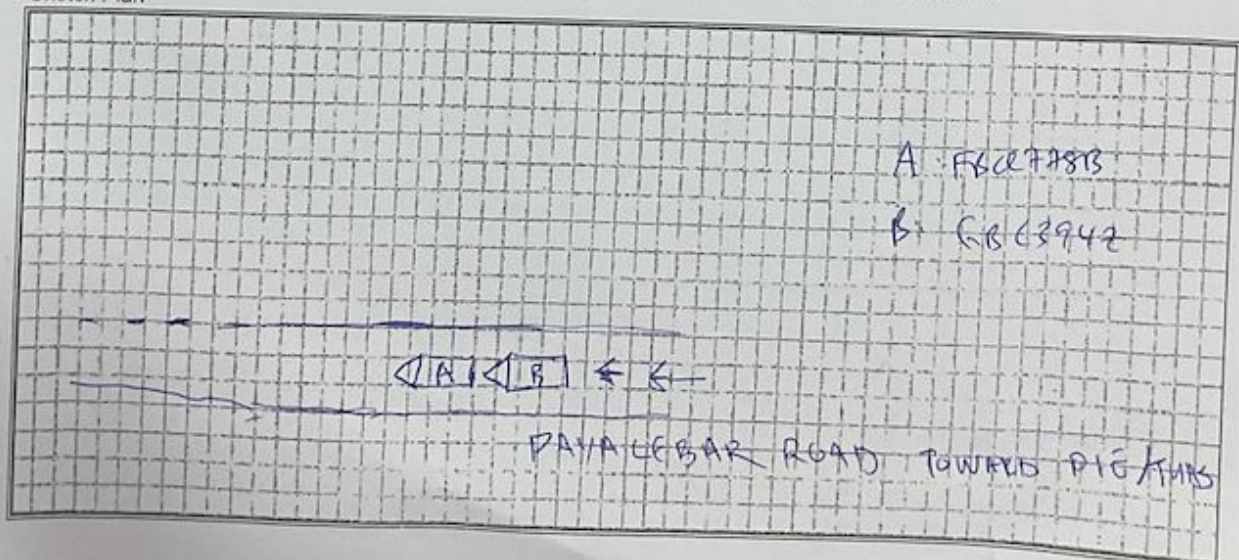 Sketch Plan
A: FBQ778B
B: GBC3942
A B
PAYA LEBAR ROAD TOWARD PIE/